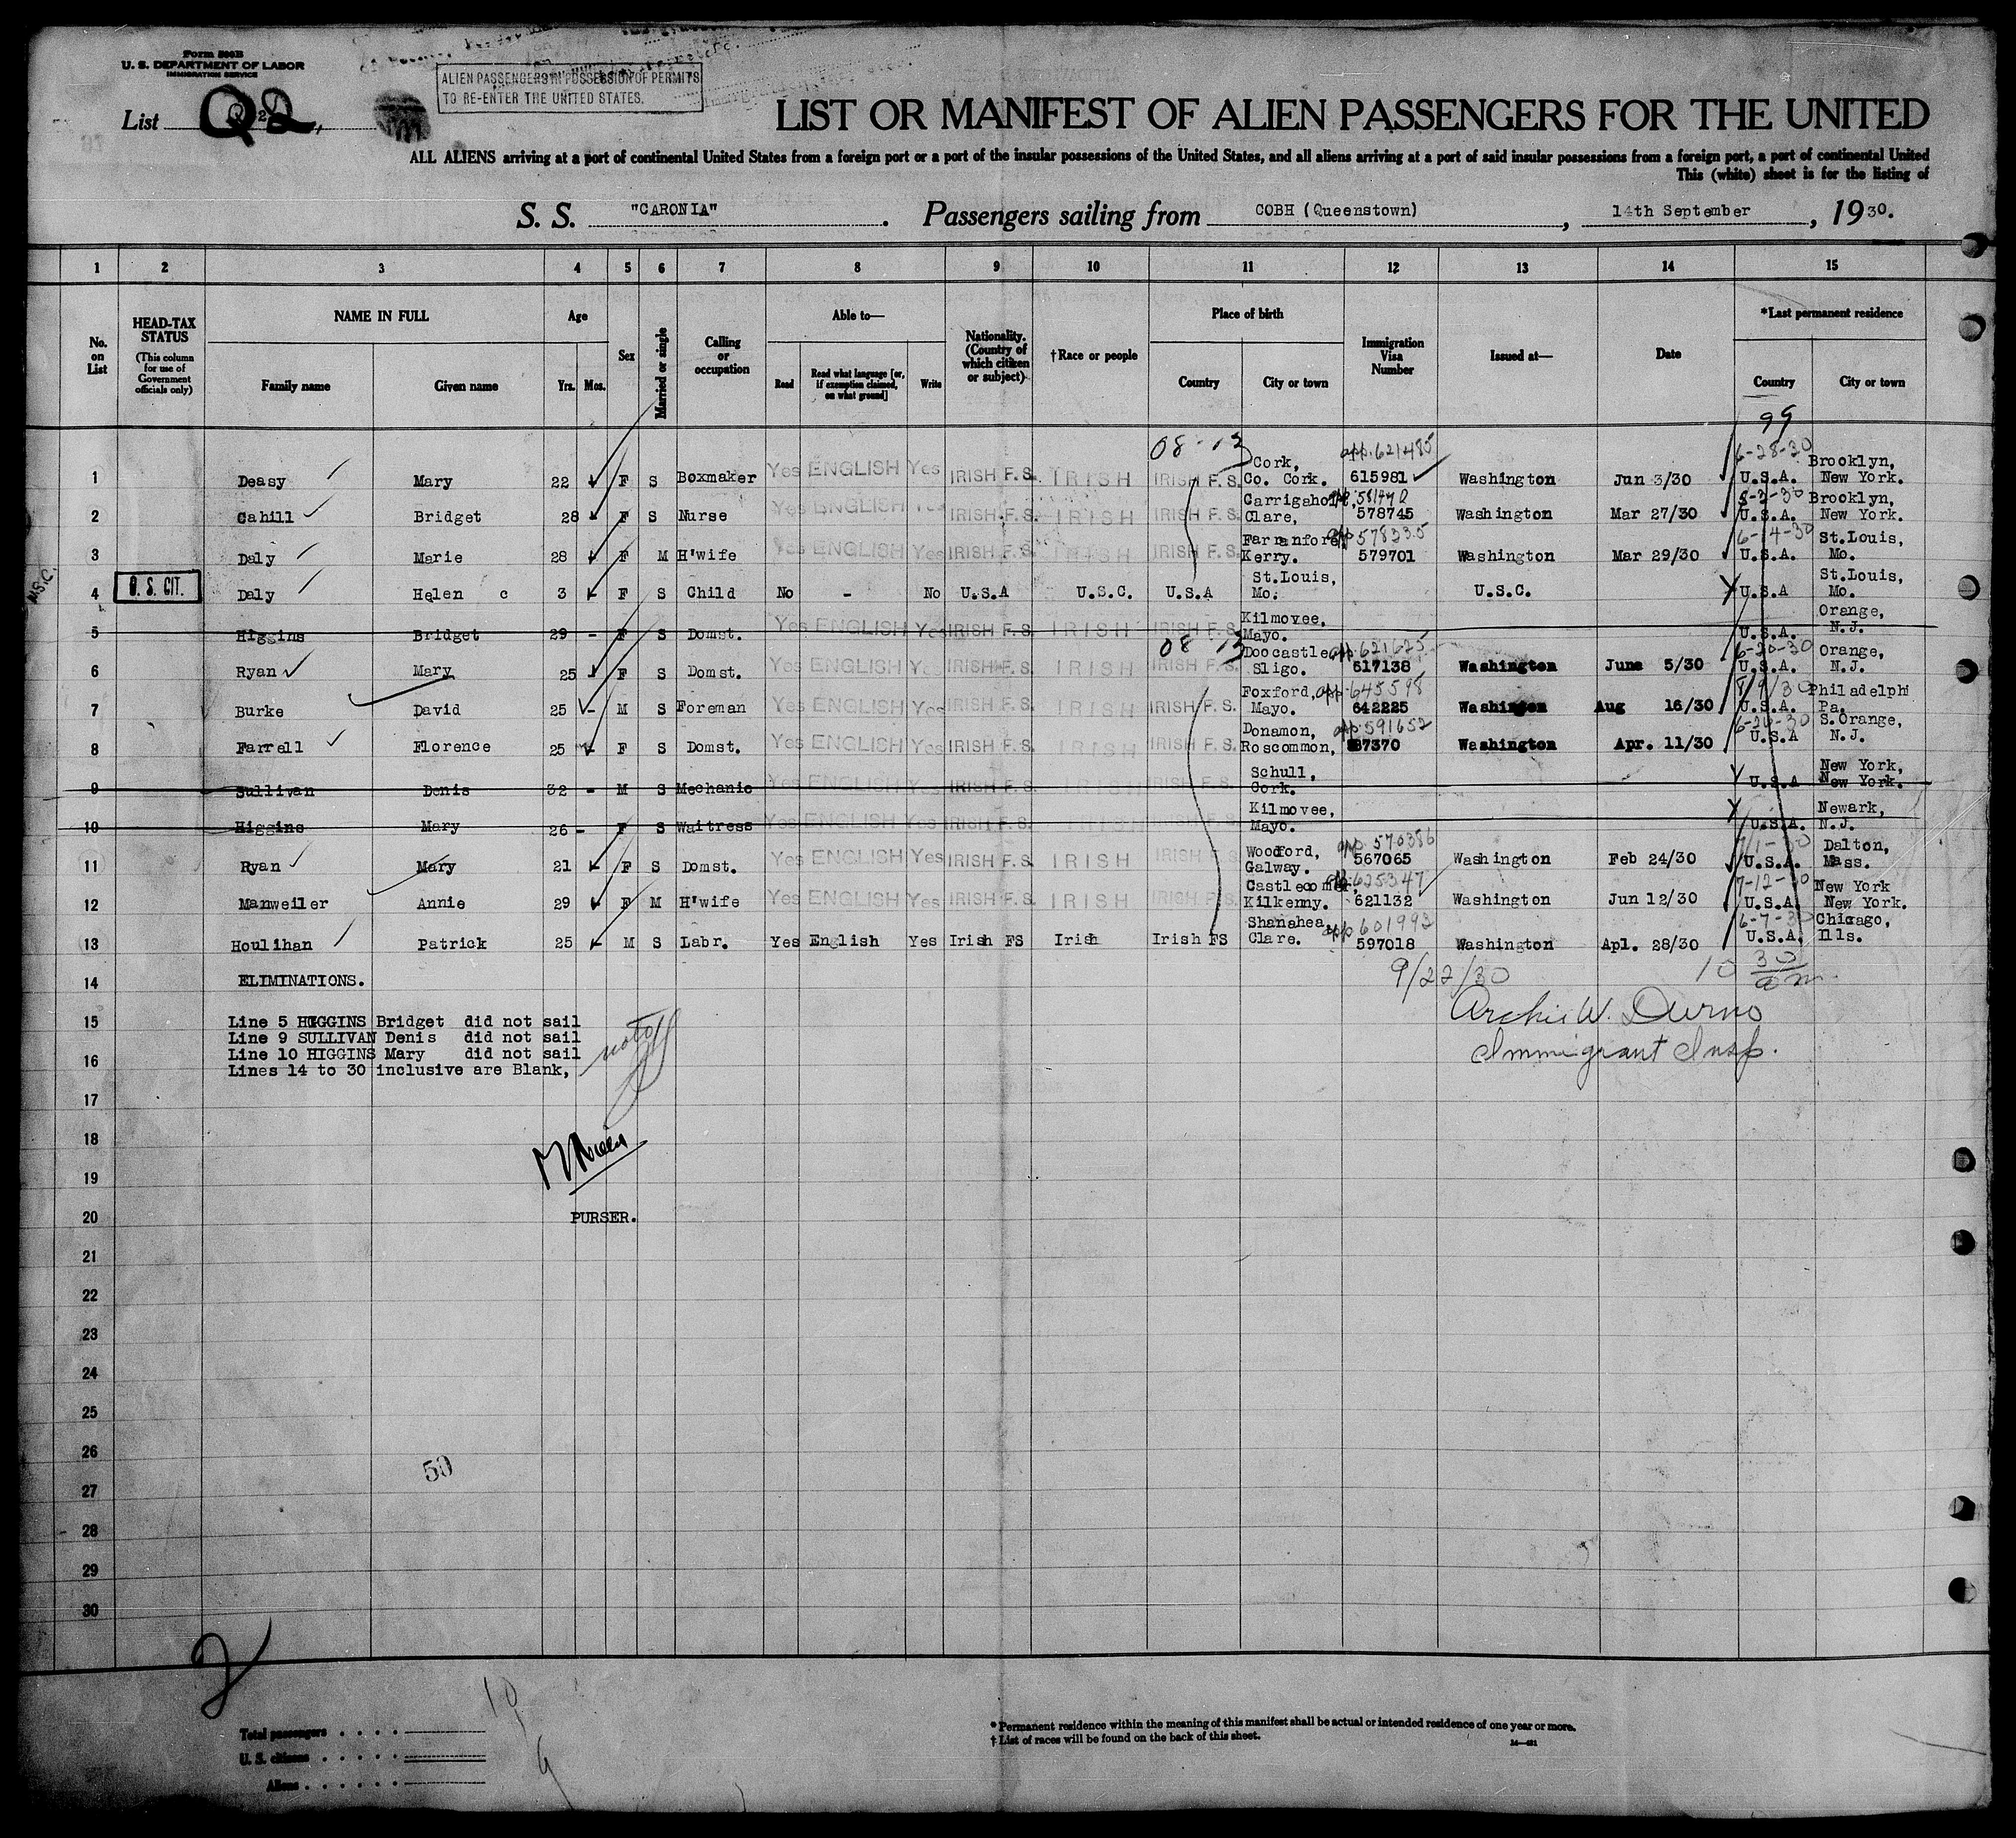 Form 500B
U. S. DEPARTMENT OF LABOR
IMMIGRATION SERVICE
List Q 2
ALIEN PASSENGERS IN POSSESSION OF PERMITS
TO RE-ENTER THE UNITED STATES.
LIST OR MANIFEST OF ALIEN PASSENGERS FOR THE UNITED
ALL ALIENS arriving at a port of continental United States from a foreign port or a port of the insular possessions of the United States, and all aliens arriving at a port of said insular possessions from a foreign port, a port of continental United
This (white) sheet is for the listing of
S. S. "CARONIA". Passengers sailing from COBH (Queenstown), 14th September, 1930.
1 2 3 4 5 6 7 8 9 10 11 12 13 14 15
No. on List
HEAD-TAX STATUS (This column for use of Government officials only)
NAME IN FULL Family name Given name
Age Yrs. Mos.
Sex
Married or single
Calling or occupation
Able to— Read Read what language [or, if exemption claimed, on what ground] Write
Nationality. (Country of which citizen or subject)
†Race or people
Place of birth Country City or town
Immigration Visa Number
Issued at—
Date
*Last permanent residence Country City or town
99
08-13
1 Deasy Mary 22 F S Boxmaker Yes ENGLISH Yes IRISH F.S. IRISH IRISH F.S. Cork, Co. Cork. app. 621485 615981 Washington Jun 3/30 6-28-30 U.S.A. Brooklyn, New York.
2 Cahill Bridget 28 F S Nurse Yes ENGLISH Yes IRISH F.S. IRISH IRISH F.S. Carrigaholt, Clare, 578745 Washington Mar 27/30 U.S.A. Brooklyn, New York.
3 Daly Marie 28 F M H'wife Yes ENGLISH Yes IRISH F.S. IRISH IRISH F.S. Farranfore Kerry. app 578335 579701 Washington Mar 29/30 6-14-30 U.S.A. St.Louis, Mo.
N.S.C.
4 U. S. CIT. Daly Helen c 3 F S Child No - No U.S.A U.S.C. U.S.A St.Louis, Mo. U.S.C. U.S.A St.Louis, Mo.
5 Higgins Bridget 29 - F S Domst. Yes ENGLISH Yes IRISH F.S. IRISH IRISH F.S. Kilmovee, Mayo. U.S.A. Orange, N.J.
08 13
6 Ryan Mary 25 F S Domst. Yes ENGLISH Yes IRISH F.S. IRISH IRISH F.S. Doocastle Sligo. app. 621625 617138 Washington June 5/30 6-20-30 U.S.A. Orange, N.J.
7 Burke David 25 - M S Foreman Yes ENGLISH Yes IRISH F.S. IRISH IRISH F.S. Foxford, Mayo. app. 645598 642225 Washington Aug 16/30 U.S.A. Philadelphi Pa.
8 Farrell Florence 25 - F S Domst. Yes ENGLISH Yes IRISH F.S. IRISH IRISH F.S. Donamon, Roscommon, app 591652 87370 Washington Apr. 11/30 U.S.A S.Orange, N.J.
9 Sullivan Denis 32 - M S Mechanic Yes ENGLISH Yes IRISH F.S. IRISH IRISH F.S. Schull, Cork. U.S.A New York, New York.
10 Higgins Mary 26 - F S Waitress Yes ENGLISH Yes IRISH F.S. IRISH IRISH F.S. Kilmovee, Mayo. U.S.A. Newark, N.J.
11 Ryan Mary 21 F S Domst. Yes ENGLISH Yes IRISH F.S. IRISH IRISH F.S. Woodford, Galway. app. 570386 567065 Washington Feb 24/30 U.S.A. Dalton, Mass.
12 Manweiler Annie 29 F M H'wife Yes ENGLISH Yes IRISH F.S. IRISH IRISH F.S. Castlecomer, Kilkenny. app. 625347 621132 Washington Jun 12/30 7-12-30 U.S.A. New York New York.
13 Houlihan Patrick 25 - M S Labr. Yes English Yes Irish FS Irish Irish FS Shanahea, Clare. app 601992 597018 Washington Apl. 28/30 6-7-30 U.S.A. Chicago, Ills.
14 ELIMINATIONS. 9/22/30 10 30/am
15 Line 5 HIGGINS Bridget did not sail
Line 9 SULLIVAN Denis did not sail
Line 10 HIGGINS Mary did not sail
16 Lines 14 to 30 inclusive are Blank,
Archie W. Durno
Immigrant Insp.
17
18
19
20 PURSER.
21
22
23
24
25
26
50
27
28
29
30
2
10
9
Total passengers
U. S. citizens
Aliens
* Permanent residence within the meaning of this manifest shall be actual or intended residence of one year or more.
† List of races will be found on the back of this sheet.